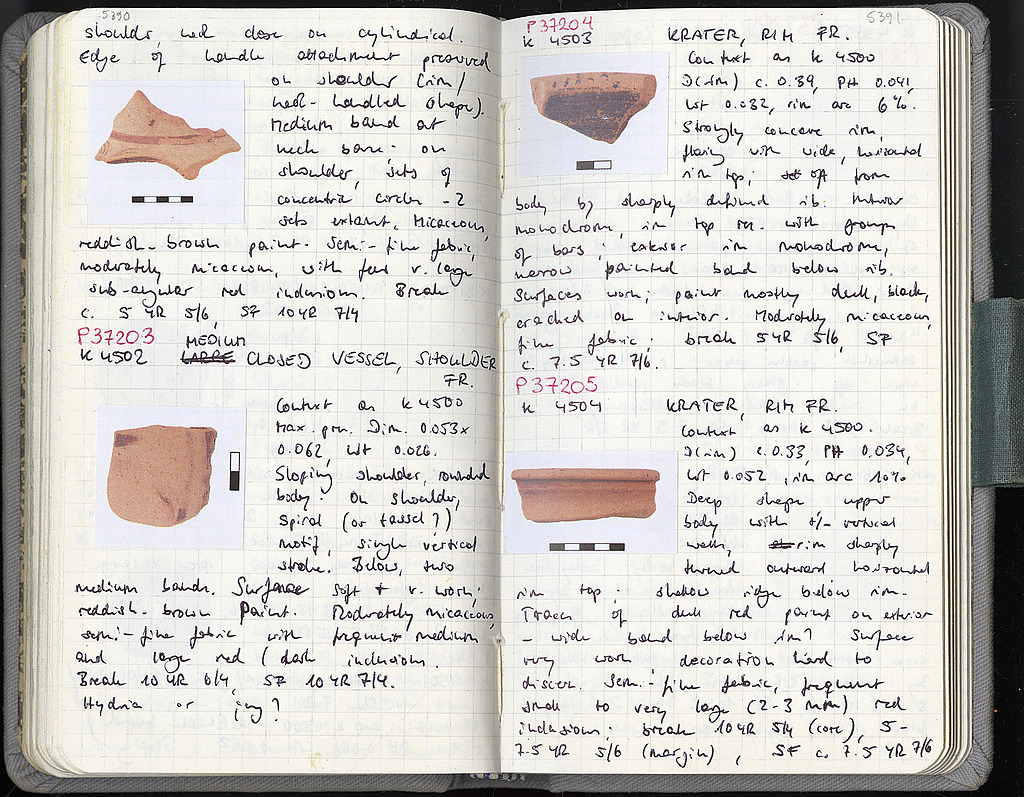 5390
shoulder, neck close on cylindrical.
Edge of handle attachment preserved
on shoulder (rim/
neck-handled shape).
Medium band at
neck base; on
shoulder, sets of
concentric circles - 2
sets extant. Micaceous,
reddish-brown paint. Semi-fine fabric,
moderately micaceous, with few v. large
sub-angular red inclusions. Break
c. 5 YR 5/6, SF 10YR 7/4
P37203
K 4502 MEDIUM LARGE CLOSED VESSEL, SHOULDER
FR.
Context as K 4500
Max. pres. Dim. 0.053x
0.062, wt 0.026.
Sloping shoulder, rounded
body: on shoulder,
spiral (or tassel?)
motif, single vertical
stroke. Below, two
medium bands. Surface soft + v. worn;
reddish-brown paint. Moderately micaceous,
semi-fine fabric with frequent medium
and large red/dark inclusions.
Break 10 YR 6/4, SF 10YR 7/4.
Hydria or jug?
5391
P37204
K 4503 KRATER, RIM FR.
Context as K 4500
D(rim) c. 0.39, PH 0.041,
wt 0.032, rim arc 6%.
Strongly concave rim,
flaring with wide, horizontal
rim top; set off from
body by sharply defined rib. Interior
monochrome, rim top res. with groups
of bars; exterior rim monochrome,
narrow painted band below rib.
Surfaces worn; paint mostly dull, black,
cracked on interior. Moderately micaceous,
fine fabric; break 5YR 5/6, SF
c. 7.5 YR 7/6.
P37205
K 4504 KRATER, RIM FR.
Context as K 4500.
D(rim) c. 0.33, PH 0.034,
wt 0.052, rim arc 10%
Deep shape upper
body with +/- vertical
walls, rim sharply
turned outward horizontal
rim top; shallow ridge below rim.
Traces of dull red paint on exterior
- wide band below rim? Surface
very worn, decoration hard to
discern. Semi-fine fabric, frequent
small to very large (2-3 mm) red
inclusions; break 10YR 5/4 (core), 5-
7.5 YR 5/6 (margin), SF c. 7.5 YR 7/6